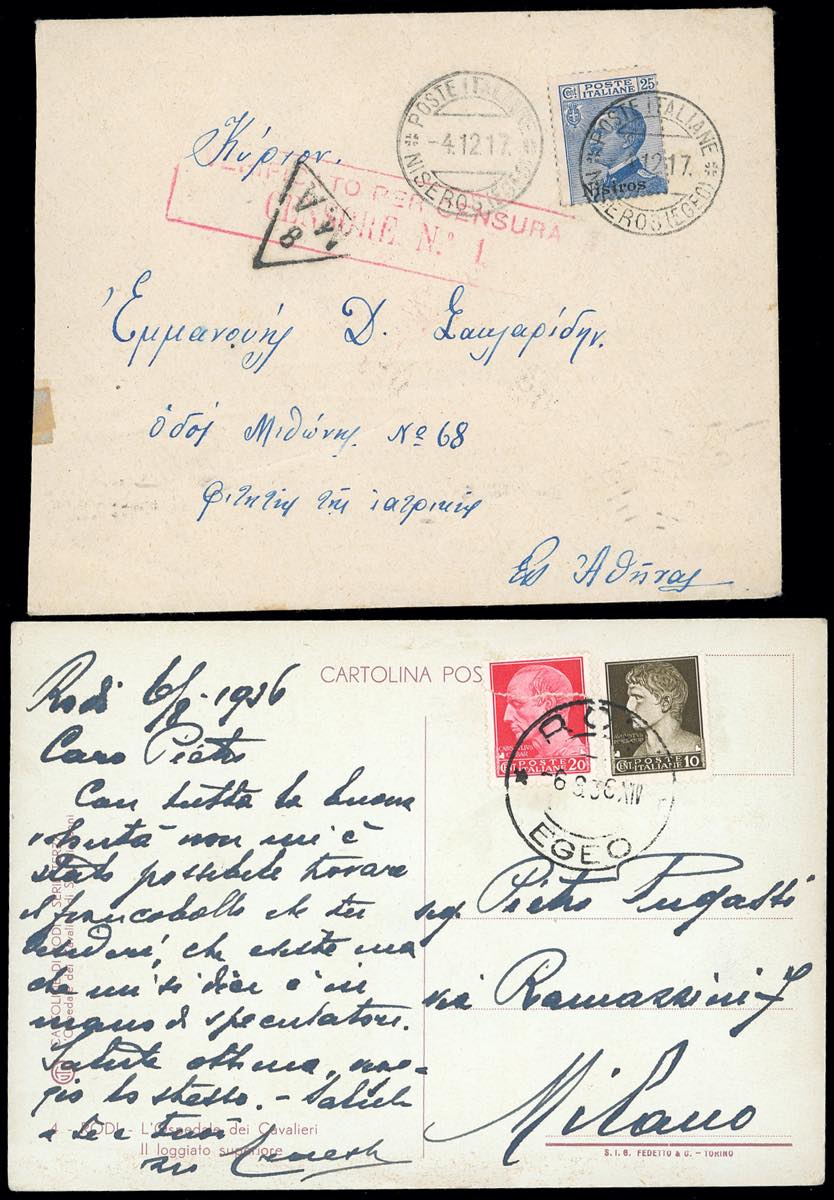 POSTE ITALIANE
-4.12.17.
NISEROS (EGEO)
Cent. POSTE ITALIANE 25
Nisiros
POSTE ITALIANE
12.17.
NISEROS (EGEO)
Κύριον
VERIFICATO PER CENSURA
CENSORE N.° 1
8
Ἐμμανουὴλ Δ. Σακλαρίδην.
ὁδὸς Μεθώνης № 68
φοιτητὴν τῆς ἰατρικῆς
Εἰς Ἀθήνας
CARTOLINA POS
CENT. POSTE ITALIANE 20
CENT. POSTE ITALIANE 10
-6.8.36 XIV
EGEO
Rodi 6/8-1936
Caro Pietro
Con tutta la buona
volontà non mi è
stato possibile trovare
il francobollo che tu
desideri, che esiste ma
che mi si dice è in
mano di speculatori.
Salute ottima,
gio lo stesso. - Saluti
a te e tuoi
zio Ernesto
sig. Pietro Fugassi
via Ramazzini 7
Milano
CARTOLINE DI RODI - SERIE TERZA
4 - RODI - L'Ospedale dei Cavalieri
Il loggiato superiore
S. I. G. FEDETTO & C. - TORINO